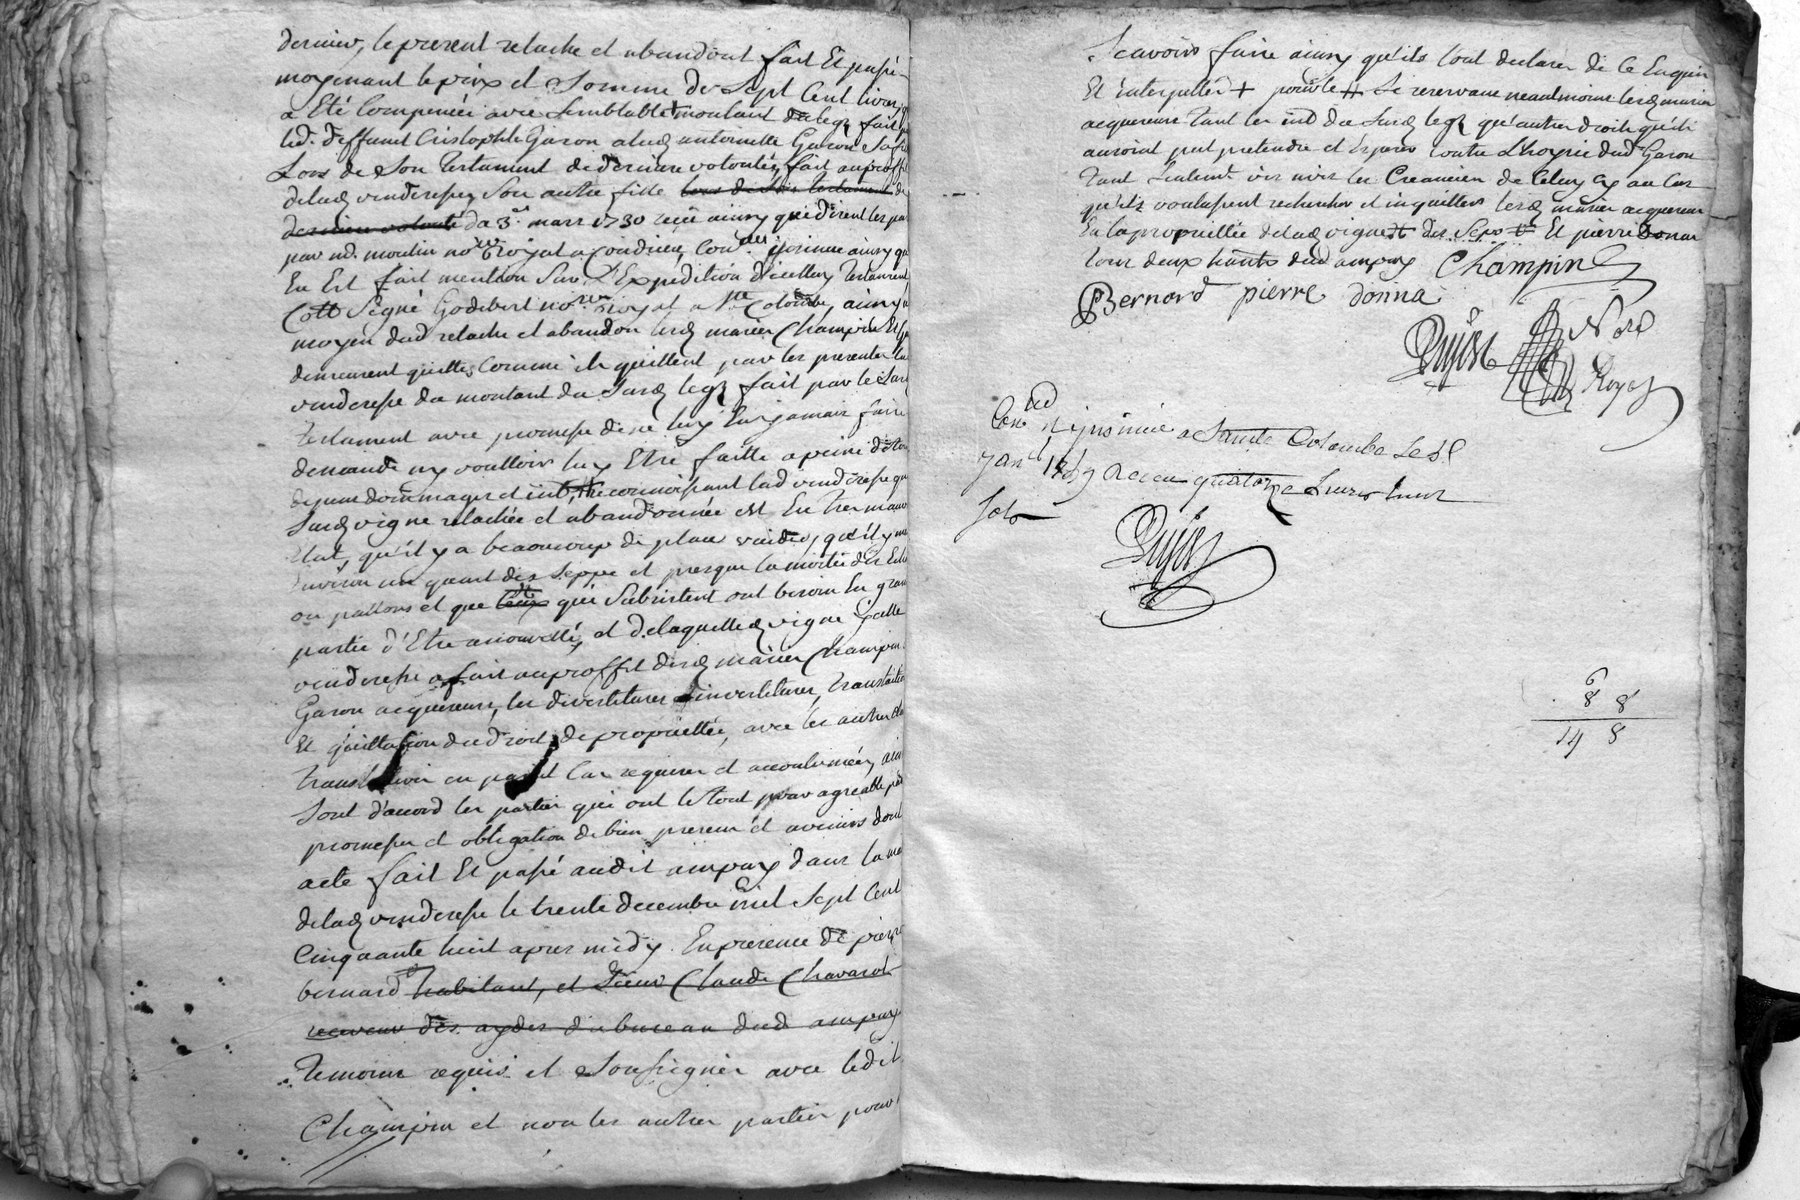 dernier, le present relache et abandont fait Et passé
moyenant le prix et Somme de Sept Cent livres
a Eté Compensée avec Semblable + montant du legz fait
led. deffunt Cristophle Garon a lad antoinette Garon Sa
Lors de Son Testament de derniere volontée, fait au proffit
delad venderesse, Son autre fille tous de Son testament de
derniere volonté du 3e. mars 1730 reçu ainsy qui dirent les par
par md. moulin nore Royal a Condrieu, Conlé, insinué ainsy qu
En Est fait mention Sur L'Expedition d'icelluy Testament
Cotte Segné Godebert nore Royal a Ste Colombe, ainsy
moyen dud relache et abandon lesd mariés Champin Et
demeurent quittes Comme ils quittent par les presentes la
venderesse du montant du Susd legz fait par le Sus
Testament avec promesse de ne luy En jamais faire
demande ny vouloir luy Etre faitte a peine de tou
depens dommages et int, reconnoissant lad venderesse que
Susd vigne relachée et abandonnée est En tres mauv
Etat, qu'il y a beaucoup de place vuides, qu'il y m
Environ un quart des Seppe et presque la moitié des Echa
ou pallons et que ceux qui Subsistent ont besoin En gran
partie d'Etre renouvellé, et de laquelle d vigne jcelle
venderesse a fait au proffit desd mariés Champin
Garon acquereurs, les divestitures investitures, translation
Et quittation du droit de proprietté, avec les autres cl
translation en pareil Cas requises et accoutumées, ains
Sont d'accord les parties qui ont le tout pour agreable par
promesses et obligation de bien presens et avenirs dont
acte fait Et passé audit ampuy dans la ma
delad venderesse le trente decembre mil Sept Cent
Cinquante huit apres midy. En presence de pierre
bernard habitant, et Sieur Claude Chavarot
receveur des aydes du bureau dud ampuy
Temoins requis et Soussignés avec ledit
Champin et non les autres parties pour
Scavoir faire ainsy qu'ils l'ont declarer de Ce Enquis
Et Interpellés + pour le # Se reservant neantmoins lesd mariés
acquereurs tant les int du Susd legz qu'autres droits qu'ils
auroient peut pretendre et Esperer Contre L'hoyrie dud Garon
tant Seulement vis avis les Creanciers de Celuy Cy au Cas
qu'ils voulussent rechercher et inquietter lesd mariés acquereurs
En la proprietté delad vigne des Seps Et pierre Donna
tous deux hants dud ampuy Champin
Bernard pierre donna
Dujast Nore
Royal
Conlé et insinué a Sainte Colombe Le 8e
Janer 1759 Receu quatorze Livres huit
Sols
Dujast
6
8 8
14 8